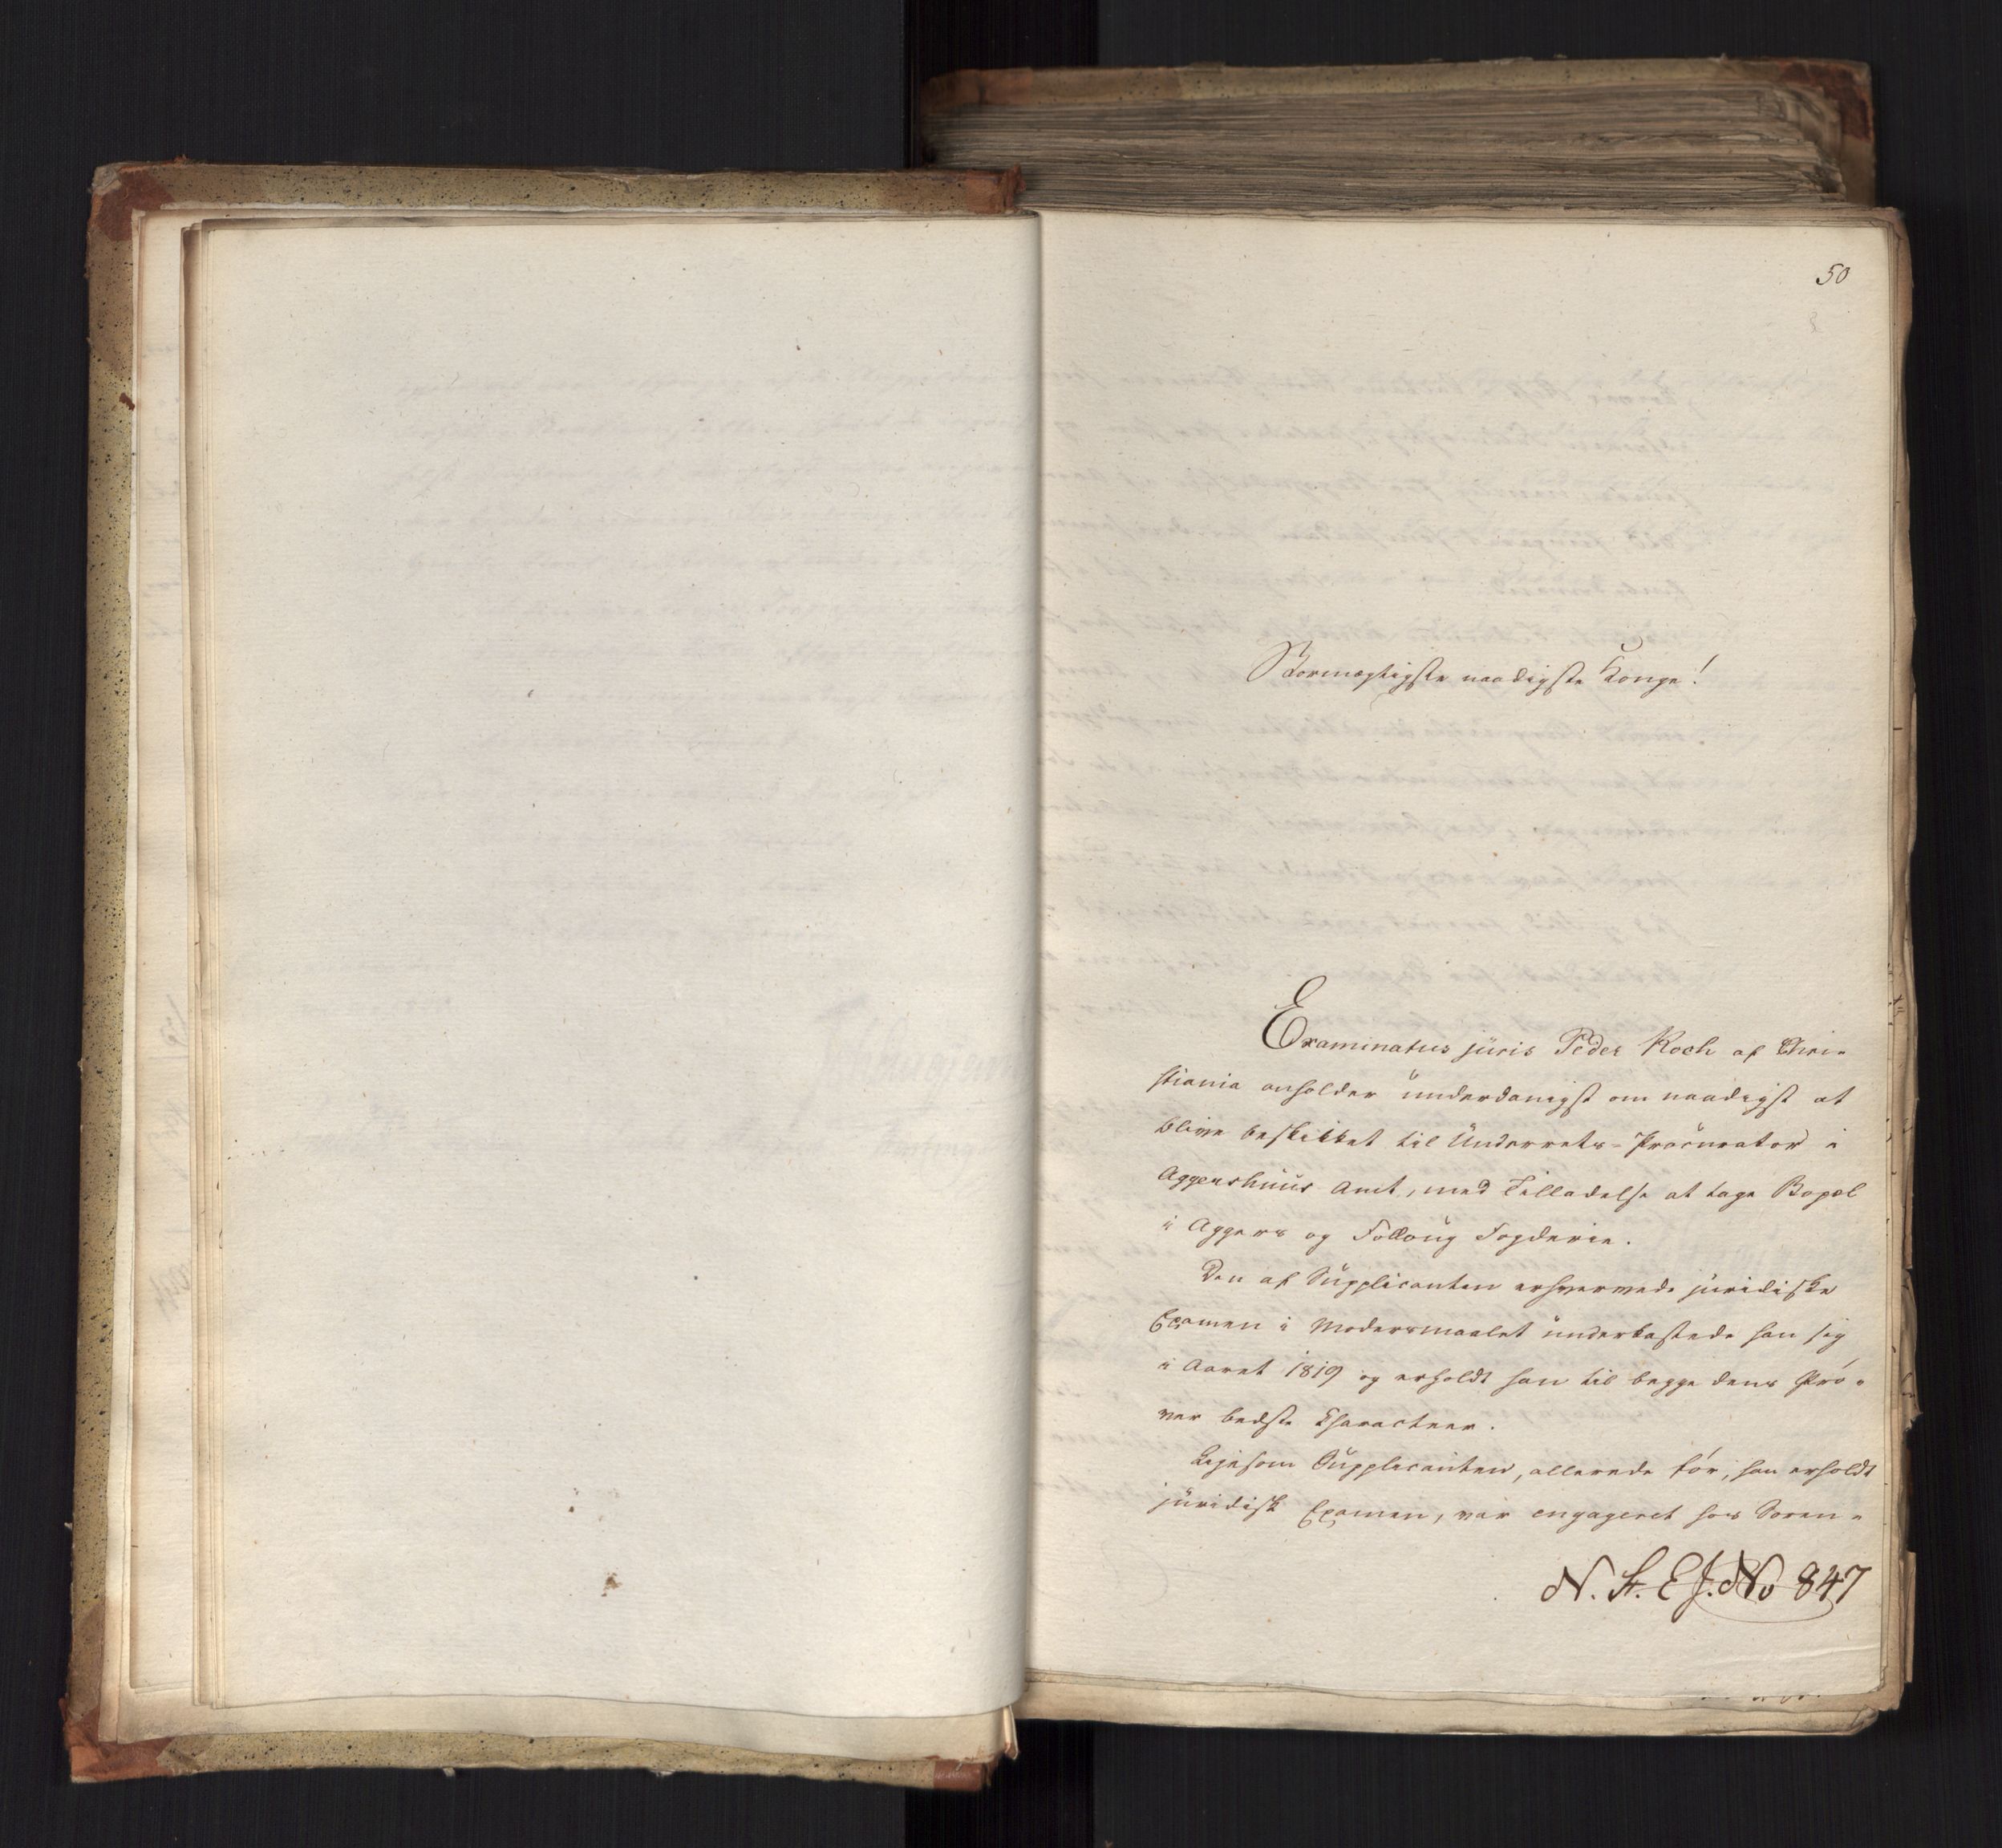 50
Stormægtigste naadigste Konge!
Examinatus juris Peder Koch af Chri-
stiania anholder underdanigst om naadigst at
blive beskikket til Underrets-Procurator i
Aggershuus Amt, med Tilladelse at tage Bopæl
i Aggers og Folloug Fogderie.
Den af Supplicanten erhvervede juridiske
Examen i Modersmaalet underkastede han sig
i Aaret 1819 og erholdt han til begge dens Prö-
ver bedste Charakteer.
Ligesom Supplicanten, allerede för, han erholdt
juridisk Examen, var engageret hos Soren-
N. St. E J. No 847